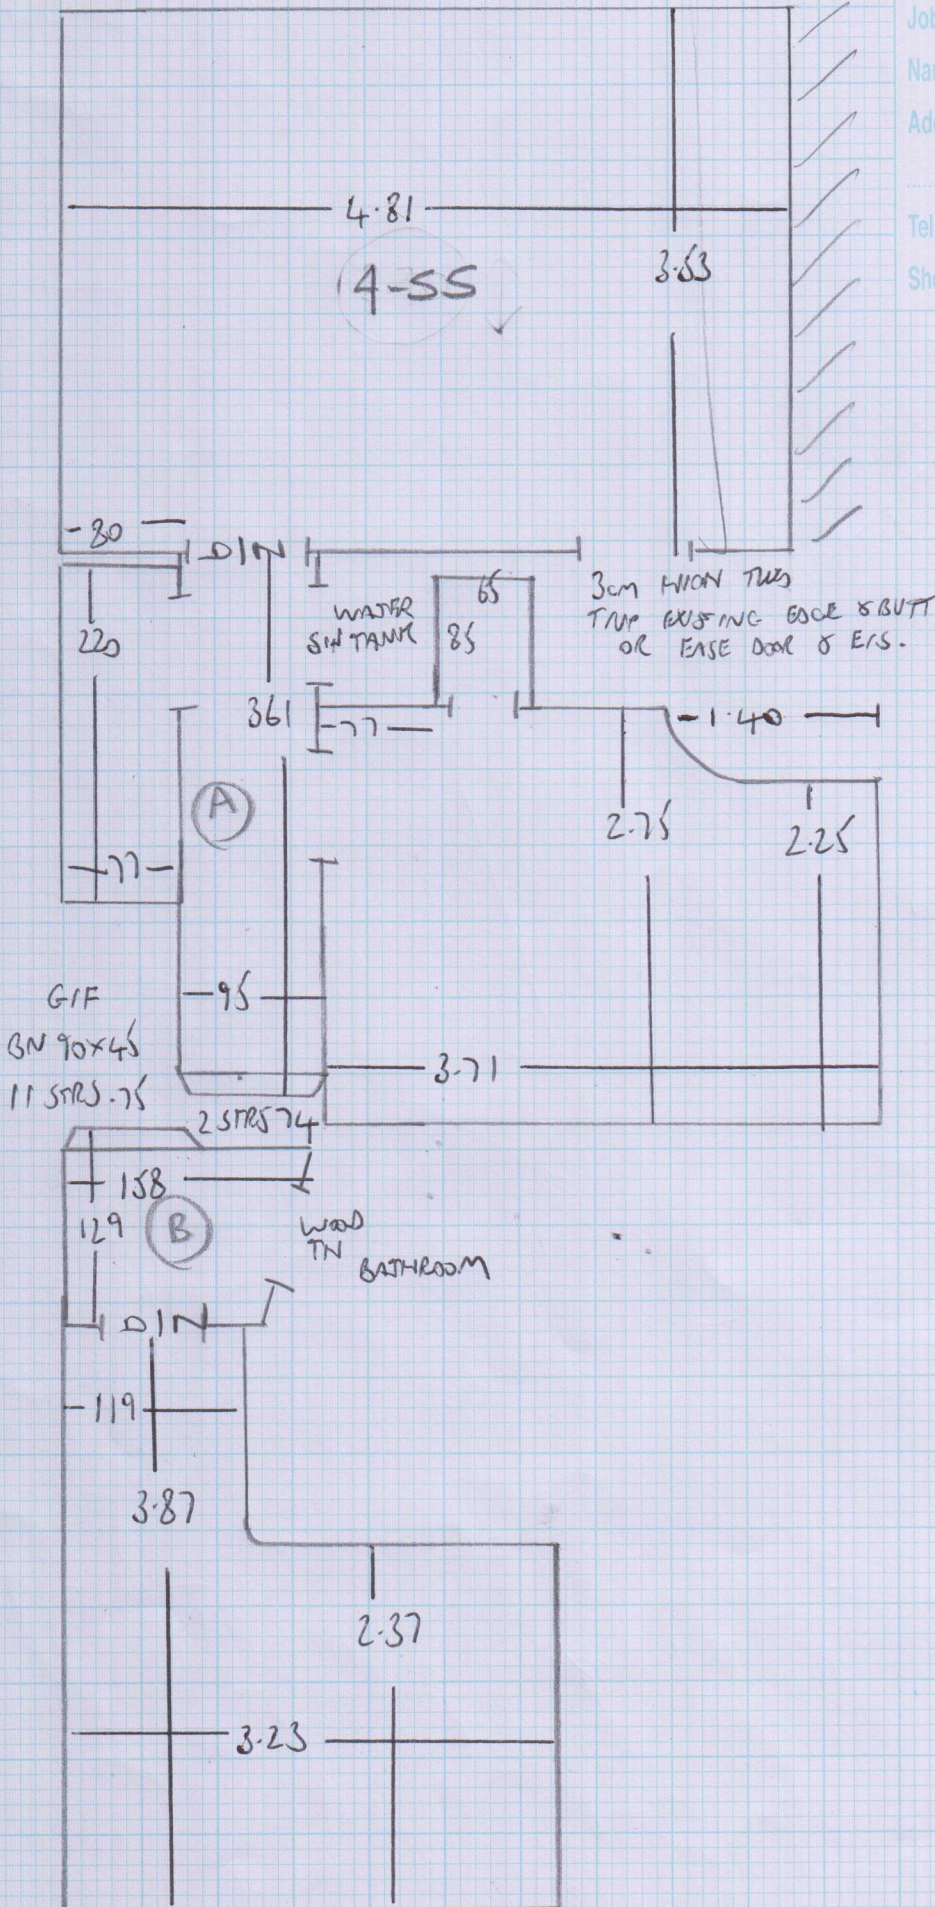 Job
Nar
Add
Tel
She
4.81
3.53
4-55
80
DIN
WATER
TANK
65
85
3cm
EXISTING EDGE & BUTT
OR EASE DOOR &
220
361
77
1.40
A
2.75
2.25
77
95
G/F
BN 90x45
11 STRS .75
3.71
2 STRS 74
158
129
B
WOOD
TN
BATHROOM
DIN
119
3.87
2.37
3.23